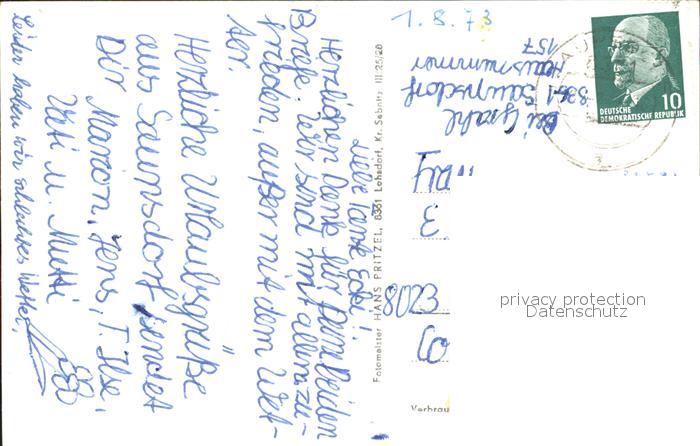 1.8.73
DEUTSCHE
DEMOKRATISCHE REPUBLIK
10
bei Grahl
8361 Saupsdorf
Hausnummer
157
Liebe Tante
Herzlichen Dank für Deine beiden
Briefe. Wir sind mit allem zu-
frieden, außer mit dem Wet-
ter.
Herzliche Urlaubsgrüße
aus Saupsdorf sendet
Dir Marion, Jens, T. Ilse,
Uti u. Mutti
Leider haben wir schlechtes Wetter,
Fotomeister HANS PRITZEL, 8361 Lohsdorf, Kr. Sebnitz III 25/20
8023
3
Verbrau
privacy protection
Datenschutz